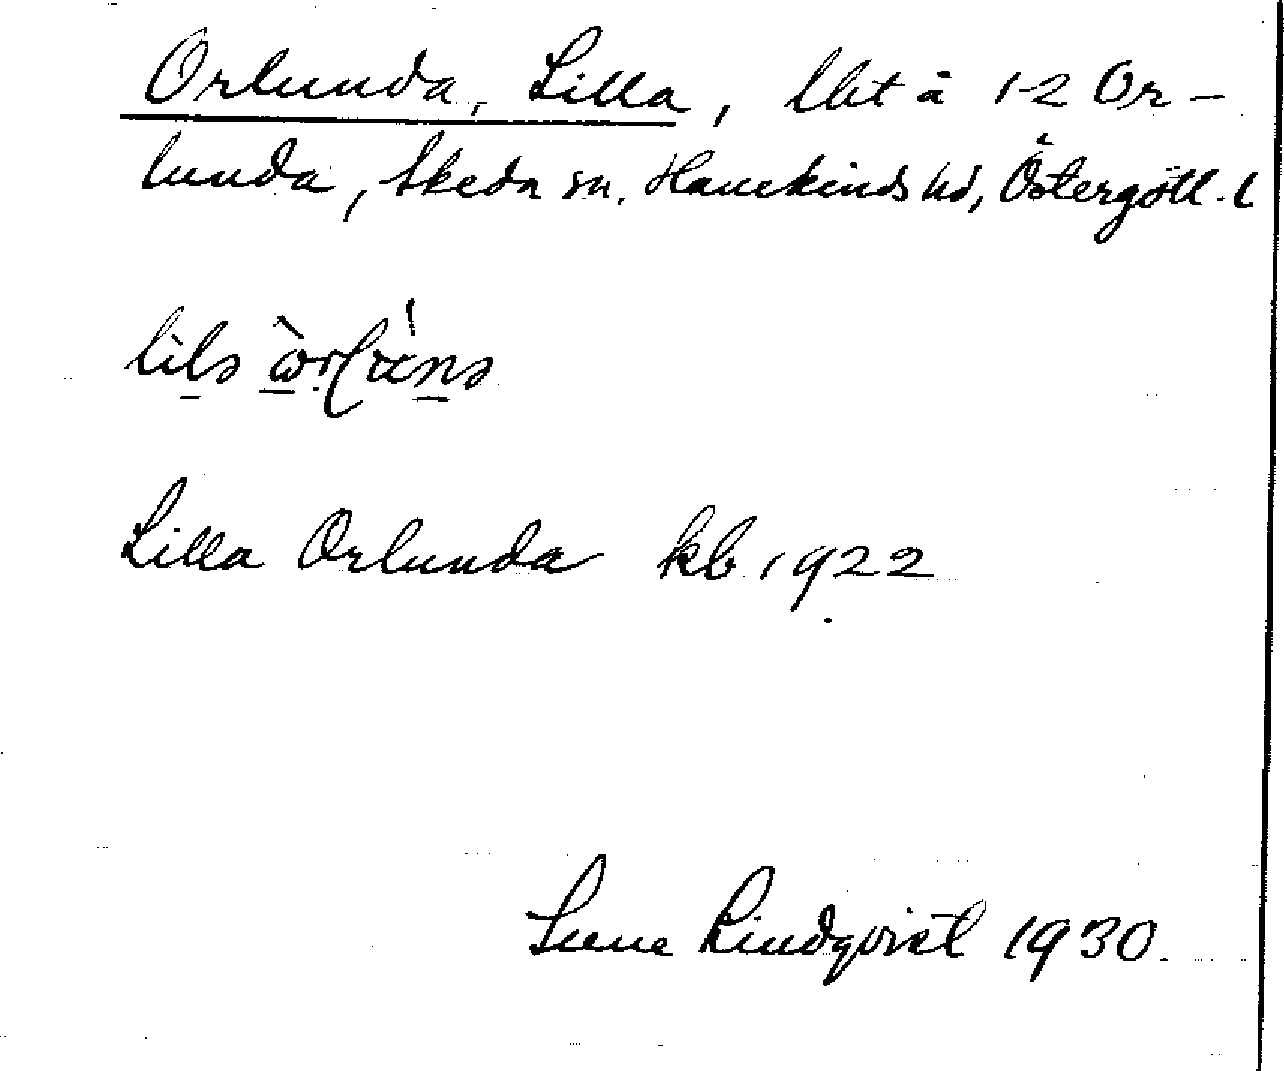 Orlunda, Lilla, lht å 1-2 Or-
lunda, Skeda sn. Hanekinds hd, Östergötl. l
Lilla Orlunda kb. 1922
Sune Lindqvist 1930.